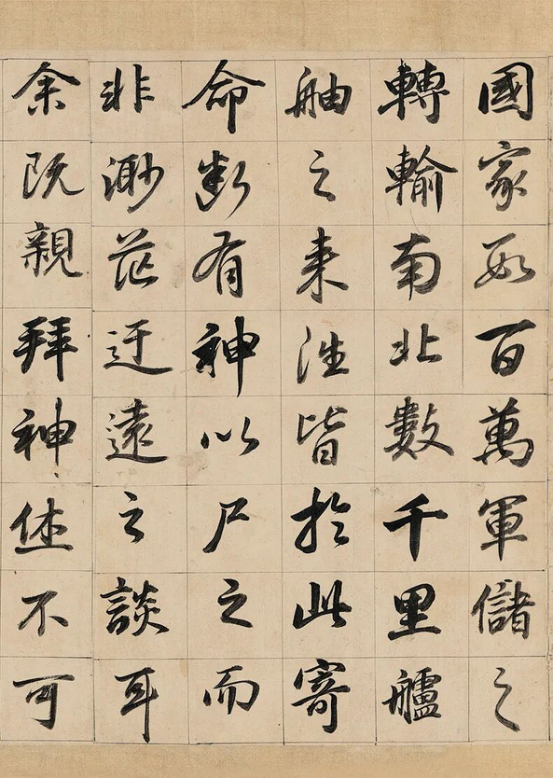 國家數百萬軍儲之
轉輸南北數千里艫
舳之来往皆於此寄
命斷有神以尸之而
非渺茫迂遠之談耳
余既親拜神休不可